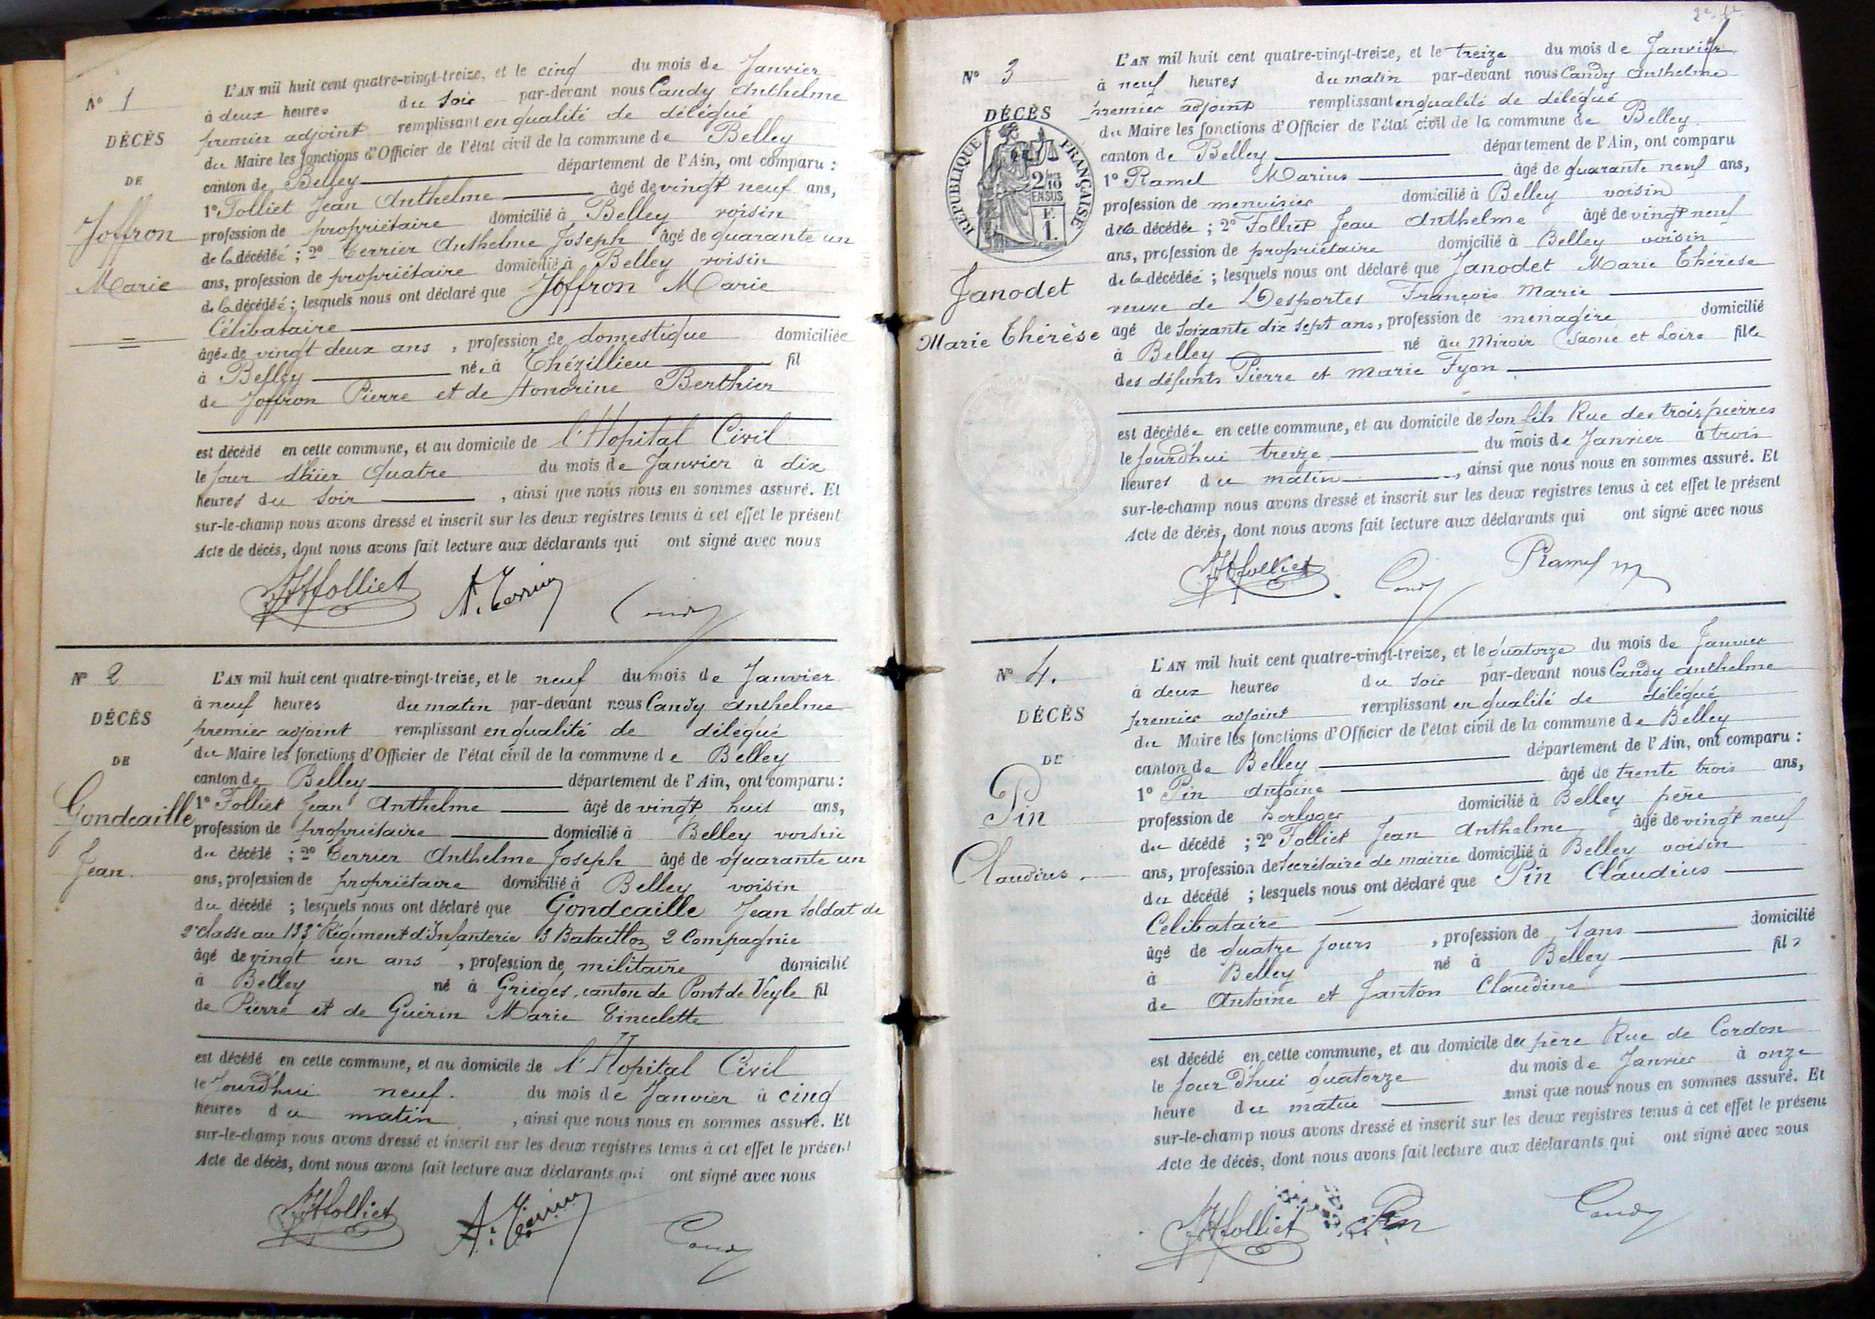 N° 1
DÉCÈS
DE
Joffron
Marie
L'AN mil huit cent quatre-vingt-treize, et le cinq du mois de Janvier
à deux heures du Soir par-devant nous Candy Anthelme
premier adjoint remplissant en qualité de délégué
du Maire les fonctions d'Officier de l'état civil de la commune de Belley
canton de Belley département de l'Ain, ont comparu :
1° Folliet Jean Anthelme âgé de vingt neuf ans,
profession de propriétaire domicilié à Belley voisin
de la décédée ; 2° Terrier Anthelme Joseph âgé de quarante un
ans, profession de propriétaire domicilié à Belley voisin
de la décédée ; lesquels nous ont déclaré que Joffron Marie
Célibataire
âgée de vingt deux ans , profession de domestique domiciliée
à Belley née à Thézillieu fil
de Joffron Pierre et de Honorine Berthier
est décédé en cette commune, et au domicile de l'Hopital Civil
le jour d'hier quatre du mois de Janvier à dix
heures du soir , ainsi que nous nous en sommes assuré. Et
sur-le-champ nous avons dressé et inscrit sur les deux registres tenus à cet effet le présent
Acte de décès, dont nous avons fait lecture aux déclarants qui ont signé avec nous
JAfolliet A. Terrier Candy
N° 2
DÉCÈS
DE
Gondcaille
Jean
L'AN mil huit cent quatre-vingt-treize, et le neuf du mois de Janvier
à neuf heures du matin par-devant nous Candy Anthelme
premier adjoint remplissant en qualité de délégué
du Maire les fonctions d'Officier de l'état civil de la commune de Belley
canton de Belley département de l'Ain, ont comparu :
1° Folliet Jean Anthelme âgé de vingt huit ans,
profession de propriétaire domicilié à Belley voisin
du décédé ; 2° Terrier Anthelme Joseph âgé de quarante un
ans, profession de propriétaire domicilié à Belley voisin
du décédé ; lesquels nous ont déclaré que Gondcaille Jean Soldat de
2e classe au 133e Régiment d'Infanterie 3 Bataillon 2 Compagnie
âgé de vingt un ans , profession de militaire domicilié
à Belley né à Grièges, canton de Pont de Veyle fil
de Pierre et de Guérin Marie
est décédé en cette commune, et au domicile de l'Hopital Civil
le Jourd'hui neuf. du mois de Janvier à cinq
heures du matin , ainsi que nous nous en sommes assuré. Et
sur-le-champ nous avons dressé et inscrit sur les deux registres tenus à cet effet le présent
Acte de décès, dont nous avons fait lecture aux déclarants qui ont signé avec nous
JAfolliet A. Terrier Candy
N° 3
DÉCÈS
RÉPUBLIQUE FRANÇAISE
2/10
EN SUS
F.
1.
Janodet
Marie Thérèse
L'AN mil huit cent quatre-vingt-treize, et le treize du mois de Janvier
à neuf heures du matin par-devant nous Candy Anthelme
premier adjoint remplissant en qualité de délégué
du Maire les fonctions d'Officier de l'état civil de la commune de Belley
canton de Belley département de l'Ain, ont comparu
1° Ramel Marius âgé de quarante neuf ans,
profession de menuisier domicilié à Belley voisin
de la décédée ; 2° Folliet Jean Anthelme âgé de vingt neuf
ans, profession de propriétaire domicilié à Belley voisin
de la décédée ; lesquels nous ont déclaré que Janodet Marie Thérèse
veuve de Desportes François Marie
âgé de soixante dix sept ans, profession de menagère domicilié
à Belley né au Miroir Saône et Loire fille
des défunts Pierre et Marie Fyon
est décédée en cette commune, et au domicile de son fils Rue des trois pierres
le Jourd'hui treize du mois de Janvier à trois
heures du matin , ainsi que nous nous en sommes assuré. Et
sur-le-champ nous avons dressé et inscrit sur les deux registres tenus à cet effet le présent
Acte de décès, dont nous avons fait lecture aux déclarants qui ont signé avec nous
JAfolliet Candy Ramel M
N° 4.
DÉCÈS
DE
Pin
Claudius
L'AN mil huit cent quatre-vingt-treize, et le quatorze du mois de Janvier
à deux heures du soir par-devant nous Candy Anthelme
premier adjoint remplissant en qualité de délégué
du Maire les fonctions d'Officier de l'état civil de la commune de Belley
canton de Belley département de l'Ain, ont comparu :
1° Pin Antoine âgé de trente trois ans,
profession de horloger domicilié à Belley père
du décédé ; 2° Folliet Jean Anthelme âgé de vingt neuf
ans, profession de Secrétaire de mairie domicilié à Belley voisin
du décédé ; lesquels nous ont déclaré que Pin Claudius
Célibataire
âgé de quatre jours , profession de sans domicilié
à Belley né à Belley fils
de Antoine et Janton Claudine
est décédé en cette commune, et au domicile du père Rue de Cordon
le Jour d'hui quatorze du mois de Janvier à onze
heure du matin ainsi que nous nous en sommes assuré. Et
sur-le-champ nous avons dressé et inscrit sur les deux registres tenus à cet effet le présent
Acte de décès, dont nous avons fait lecture aux déclarants qui ont signé avec nous
JAfolliet Pin Candy